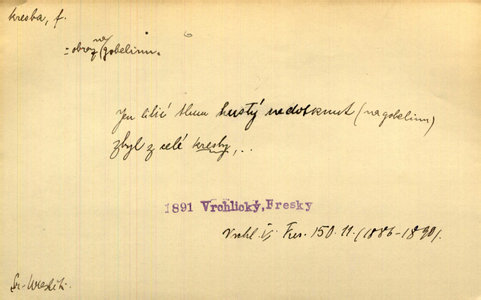 kresba, f.
= obraz na gobelinu.
Jen lilií stuha hustý nedotknut (na gobelinu)
zbyl z celé kresby, ..
1891 Vrchlický, Fresky
Vrchl. Fres. 150. 11. (1886–1890).